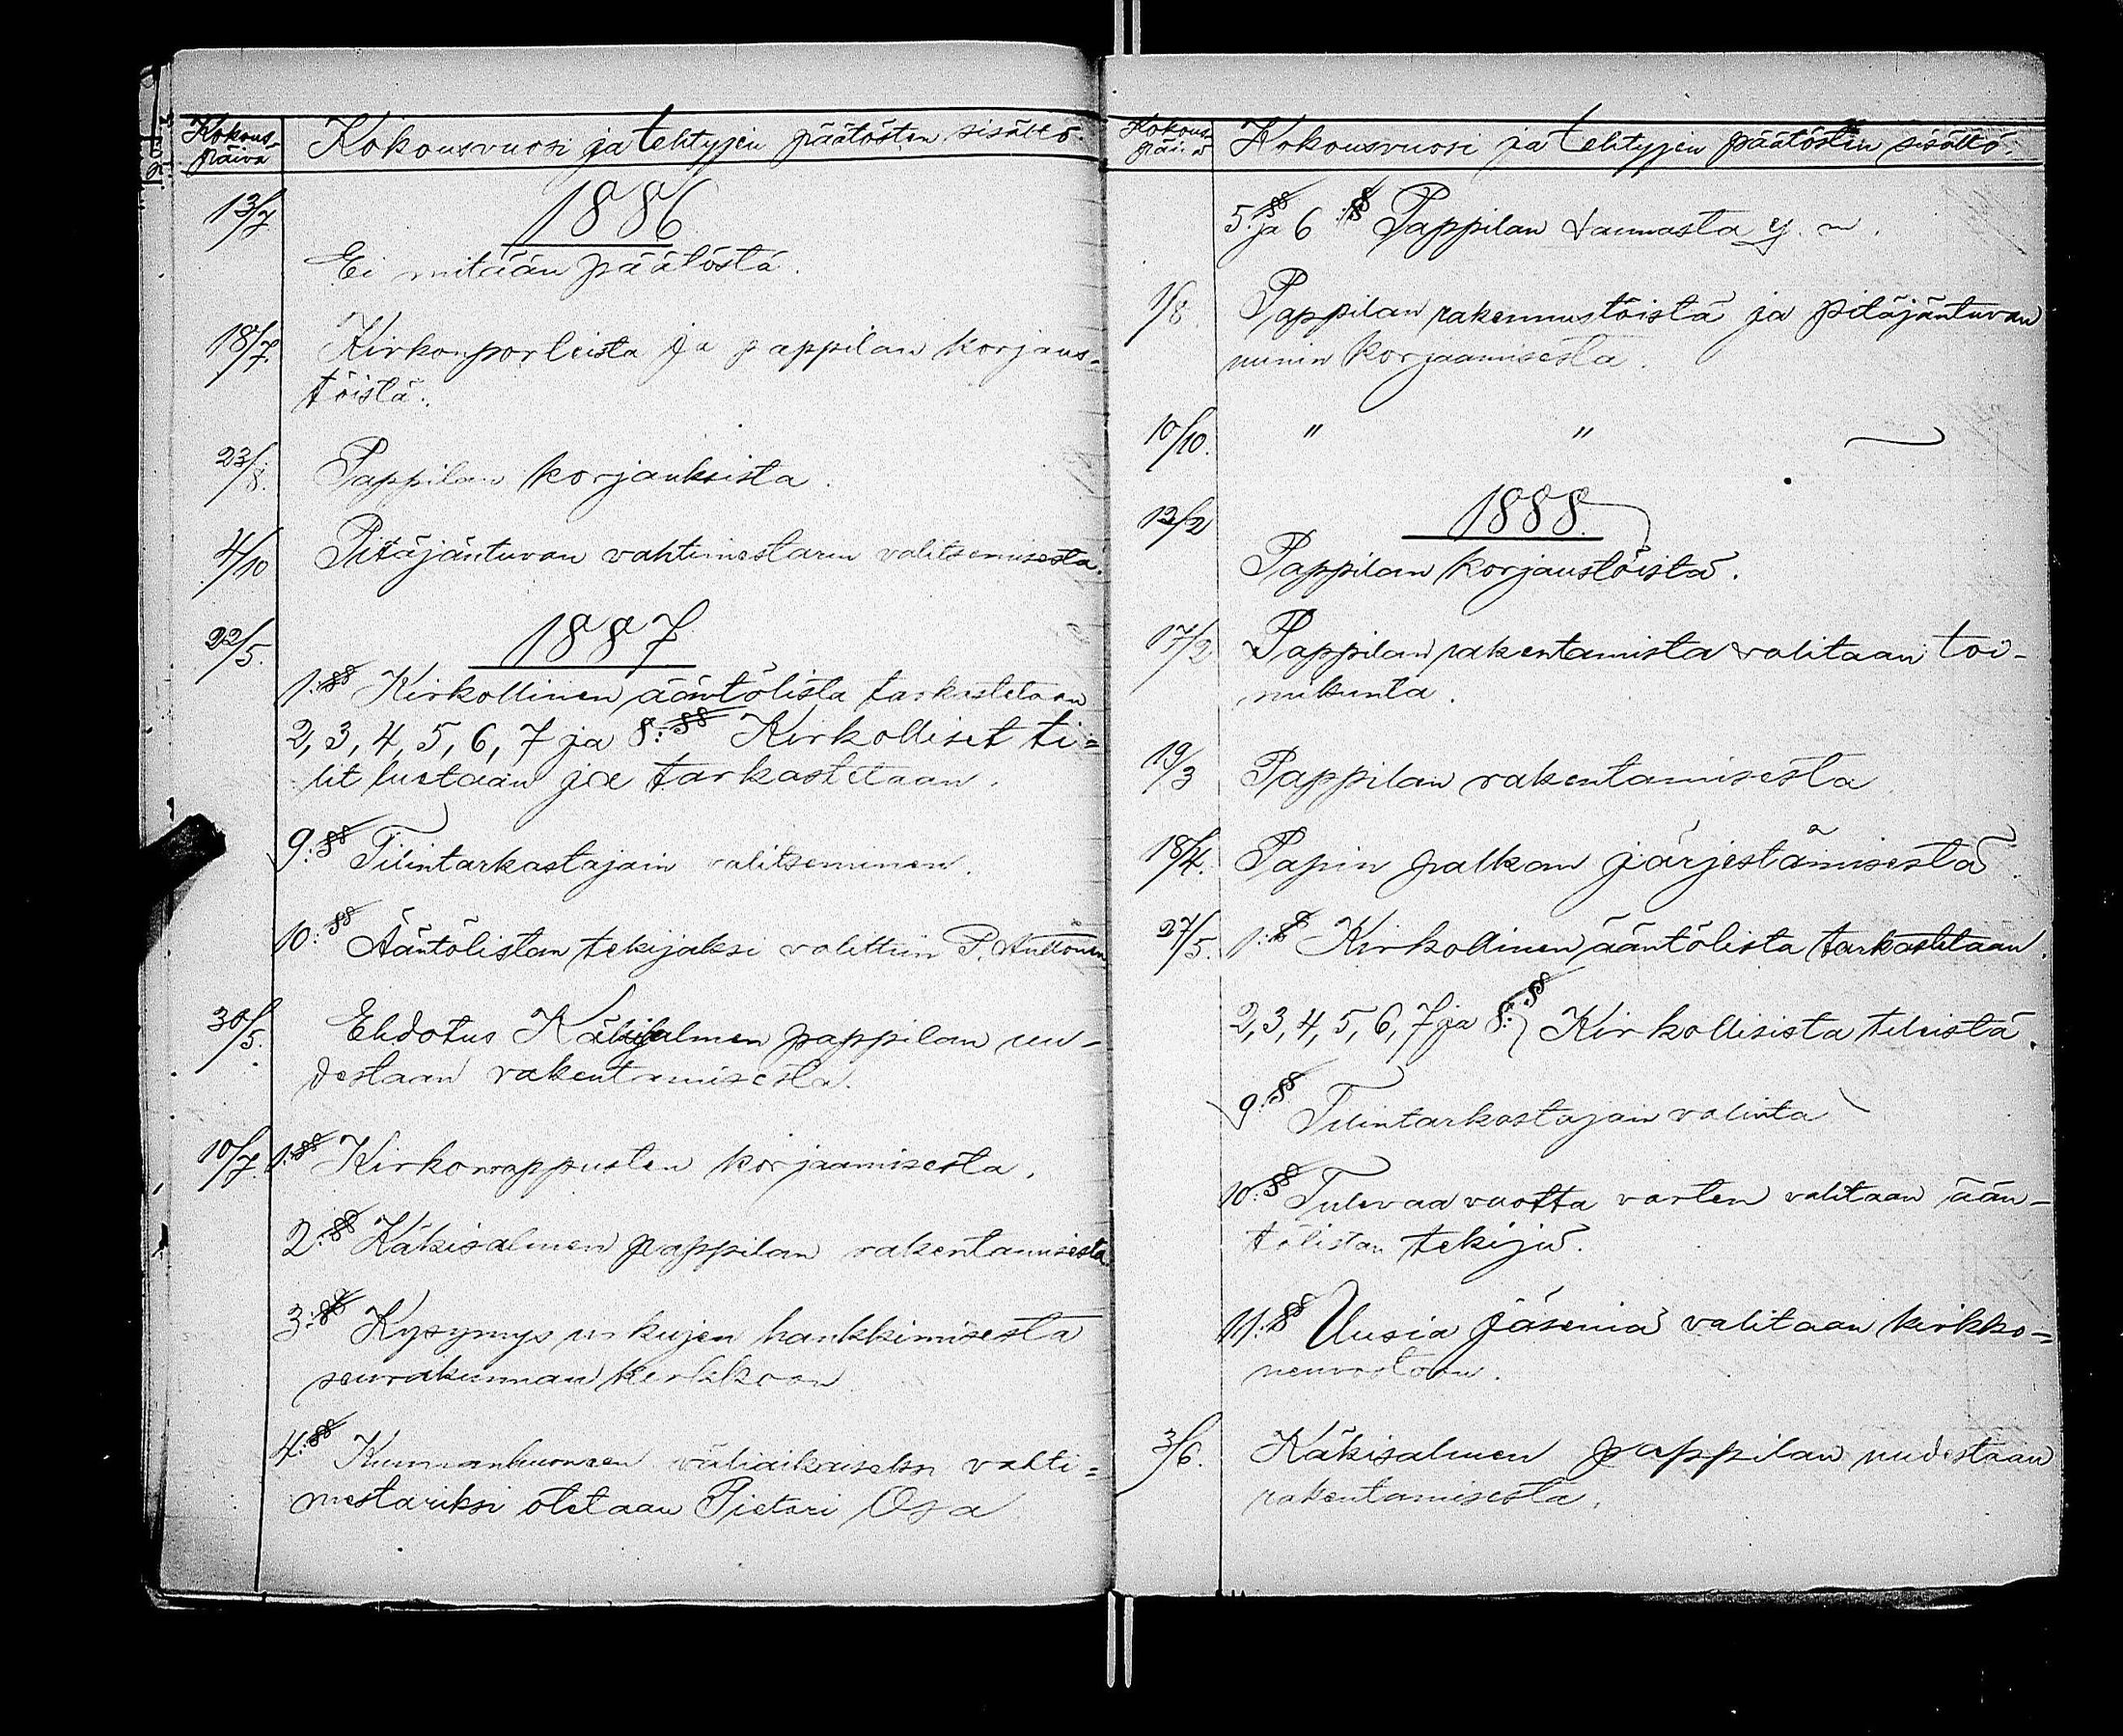 Kokous-
päivä
Kokousvuosi ja tehtyjen päätösten sisältö.
13/7
1886
Ei mitään päätöstä.
18/7.
Kirkonporleista ja pappilan korjaus-
töistä.
23/8.
Pappilan korjauksista.
4/10
Pitäjäntuvan vahtimestarin valitsemisesta.
22/5.
1887
1:§§ Kirkollinen ääntölista tarkastetaan
2, 3, 4, 5, 6, 7 ja 8:§§ Kirkolliset ti=
lit luetaan ja tarkastetaan.
9:§§ Tilintarkastajain valitseminen.
10:§§ Ääntölistan tekijäksi valittiin P.
30/5.
Ehdotus Käkisalmen pappilan uu-
destaan rakentamisesta.
10/7.
1:§§ Kirkonrappusten korjaamisesta.
2:§§ Käkisalmen pappilan rakentamisesta
3:§§ Kysymys urkujen hankkimisesta
seurakunnan kirkkoon
4:§§ Kunnanhuoneen väliaikaiseksi vahti=
mestariksi otetaan Pietari Osa
Kokous-
päivä
Kokousvuosi ja tehtyjen päätösten sisältö.
5:§§ ja 6:§§ Pappilan saunasta y. m.
1/8.
Pappilan rakennustöistä ja pitäjäntuvan
uunin korjaamisesta.
10/10.
" "
12/2
1888.
Pappilan korjaustöistä.
17/2
Pappilan rakentamista valitaan toi-
mikunta.
19/3
Pappilan rakentamisesta
18/4.
Papin palkan järjestämisestä.
27/5.
1:§ Kirkollinen ääntölista tarkastetaan.
2, 3, 4, 5, 6, 7 ja 8:§§ Kirkollisista tileistä.
9:§§ Tilintarkastajain valinta
10:§§ Tulevaa vuotta varten valitaan ään-
tölistan tekijä.
11:§§ Uusia jäseniä valitaan kirkko=
neuvostoon.
3/6.
Käkisalmen pappilan uudestaan
rakentamisesta.